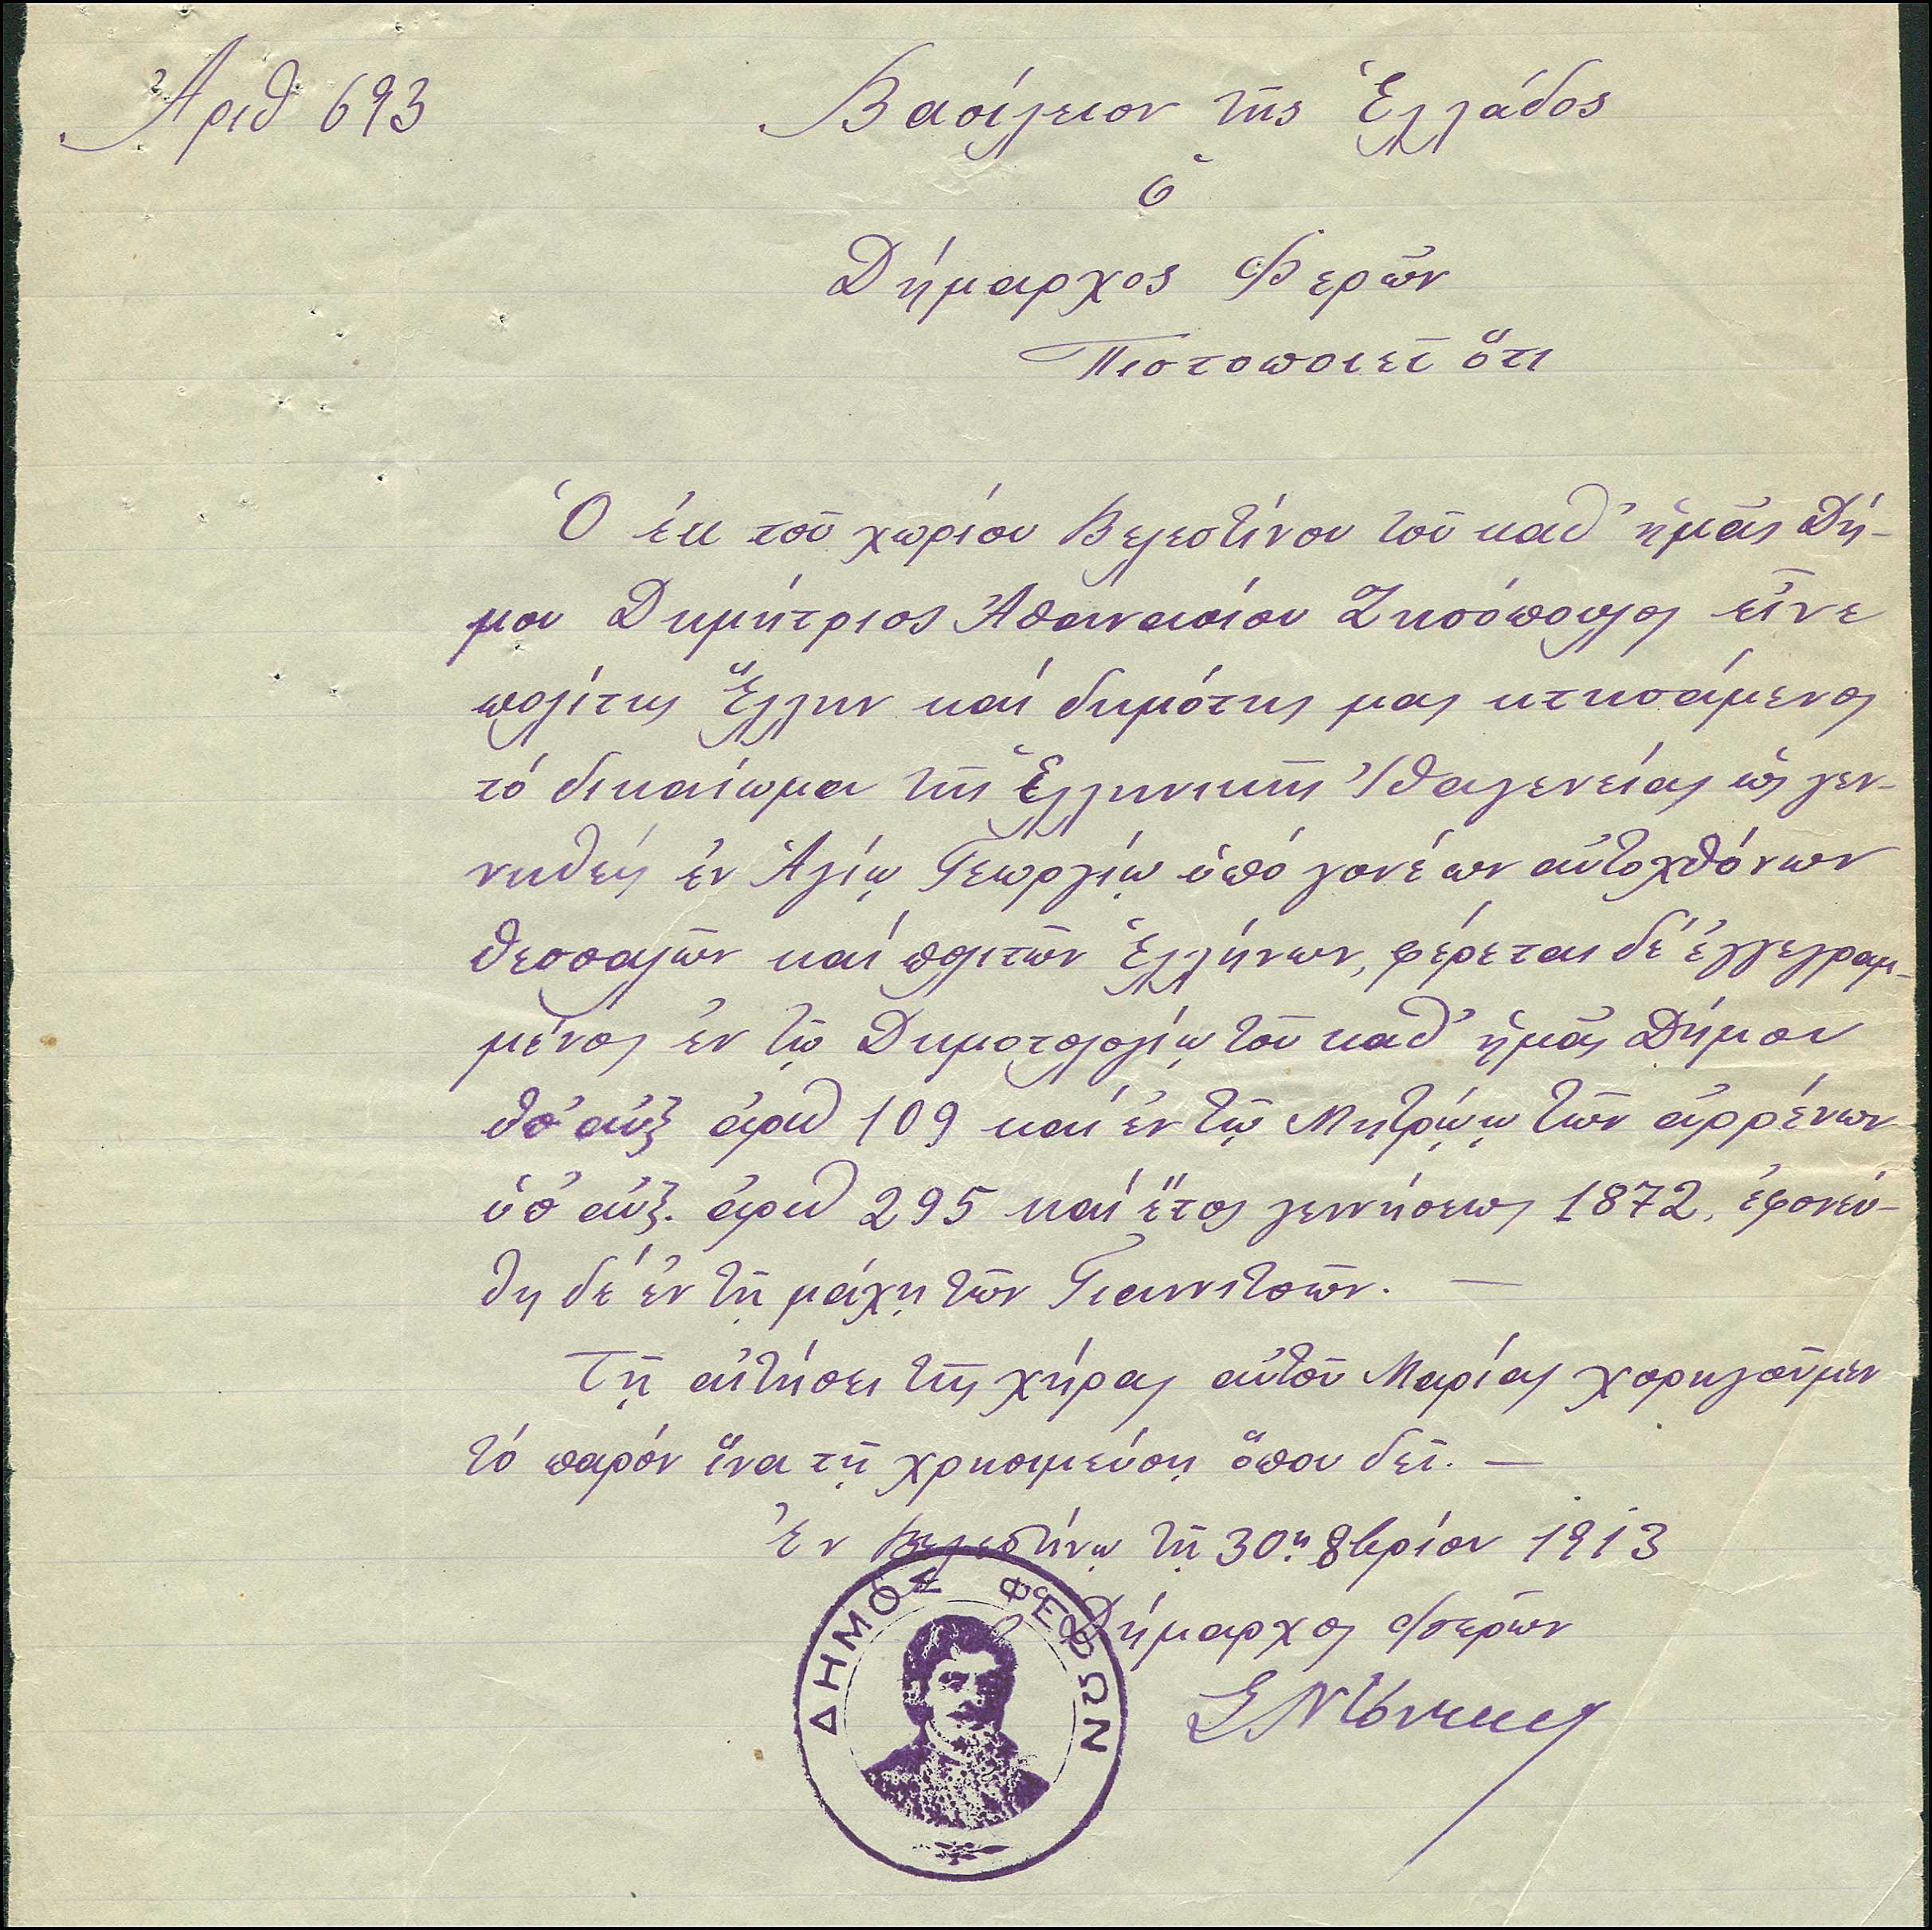 Ἀριθ 693
Βασίλειον τῆς Ἑλλάδος
Ὁ
Δήμαρχος Φερῶν
Πιστοποιεῖ ὅτι
Ὁ ἐκ τοῦ χωρίου Βελεστίνου τοῦ καθ' ἡμᾶς Δή-
μου Δημήτριος Ἀθανασίου Ζησόπουλος εἶνε
πολίτης Ἕλλην καί δημότης μας κτησάμενος
τό δικαίωμα τῆς Ἑλληνικῆς Ἰθαγενείας ὡς γεν-
νηθείς ἐν Ἁγίῳ Γεωργίῳ ὑπό γονέων αὐτοχθόνων
Θεσσαλῶν καί πολιτῶν Ἑλλήνων, φέρεται δέ ἐγγεγραμ-
μένος ἐν τῷ Δημοτολογίῳ τοῦ καθ' ἡμᾶς Δήμου
ὑπ' αὐξ ἀριθ 109 καί ἐν τῷ Μητρῴῳ τῶν ἀρρένων
ὑπ' αὐξ. ἀριθ 295 καί ἔτος γεννήσεως 1872, ἐφονεύ-
θη δέ ἐν τῇ μάχῃ τῶν Γιαννιτσῶν. —
Τῇ αἰτήσει τῆς χήρας αὐτοῦ Μαρίας χορηγοῦμεν
τό παρόν ἵνα τῇ χρησιμεύσῃ ὅπου δεῖ. —
Ἐν Βελεστίνῳ τῇ 30ῃ 8βρίου 1913
Ὁ Δήμαρχος Φερῶν
ΔΗΜΟΣ ΦΕΡΩΝ